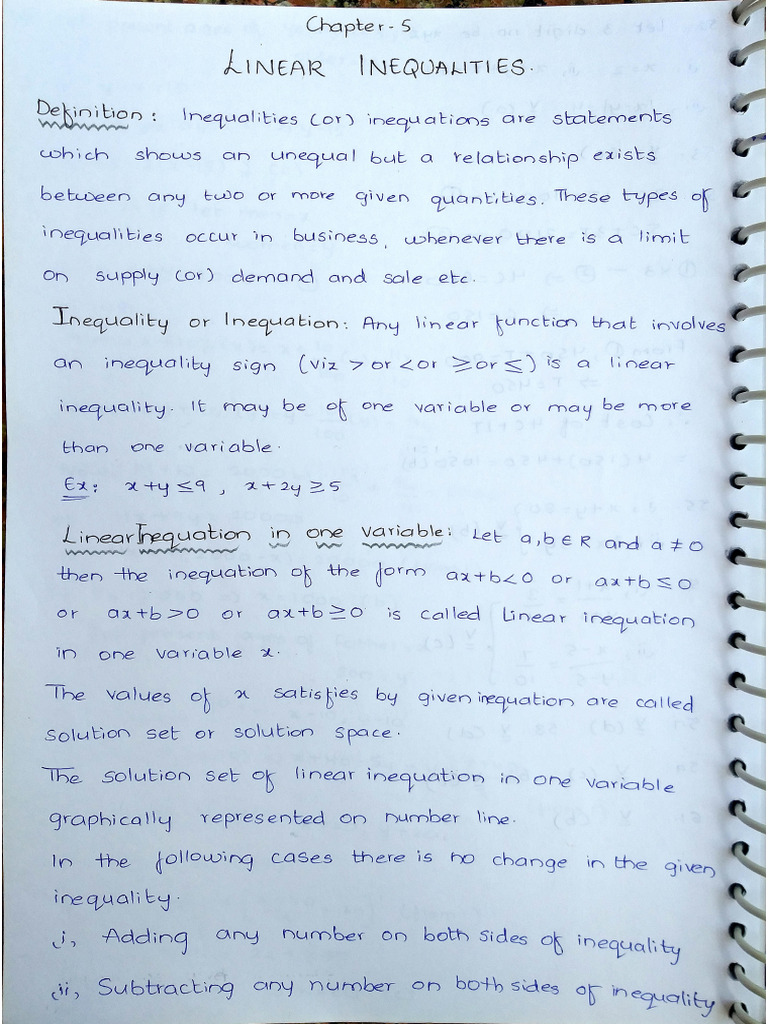 Chapter - 5
LINEAR INEQUALITIES.
Definition: Inequalities (or) inequations are statements
which shows an unequal but a relationship exists
between any two or more given quantities. These types of
inequalities occur in business, whenever there is a limit
on supply (or) demand and sale etc.
Inequality or Inequation: Any linear function that involves
an inequality sign (viz > or < or ≥ or ≤) is a linear
inequality. It may be of one variable or may be more
than one variable.
Ex: x+y ≤ 9 , x+2y ≥ 5
Linear Inequation in one variable: Let a,b ∈ R and a ≠ 0
then the inequation of the form ax+b<0 or ax+b ≤ 0
or ax+b >0 or ax+b ≥ 0 is called Linear inequation
in one variable x.
The values of x satisfies by given inequation are called
solution set or solution space.
The solution set of linear inequation in one variable
graphically represented on number line.
In the following cases there is no change in the given
inequality.
i, Adding any number on both sides of inequality
ii, Subtracting any number on both sides of inequality